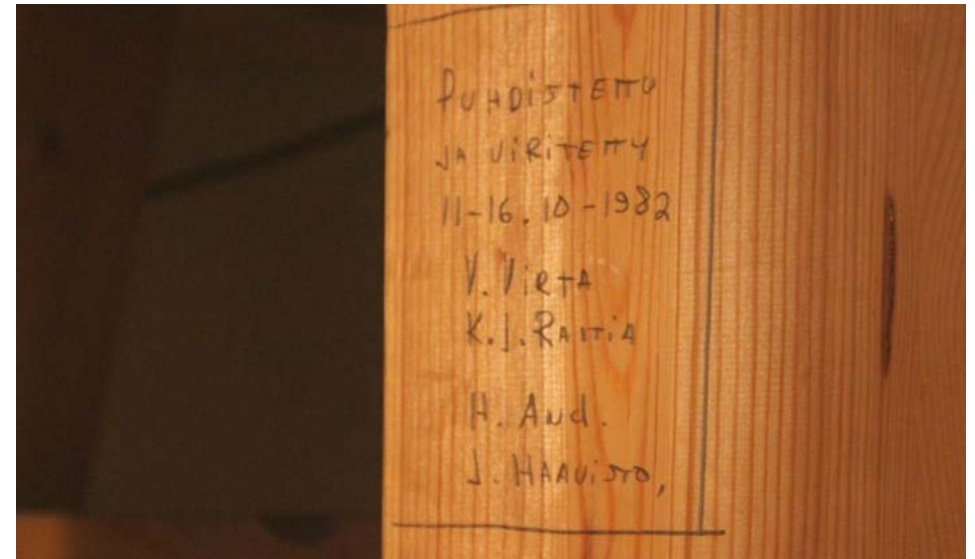 PUHDISTETTU
JA VIRITETTY
11-16.10-1982
V. VIRTA
K.J. RAITIA
H. AUd.
J. HAAVISTO,